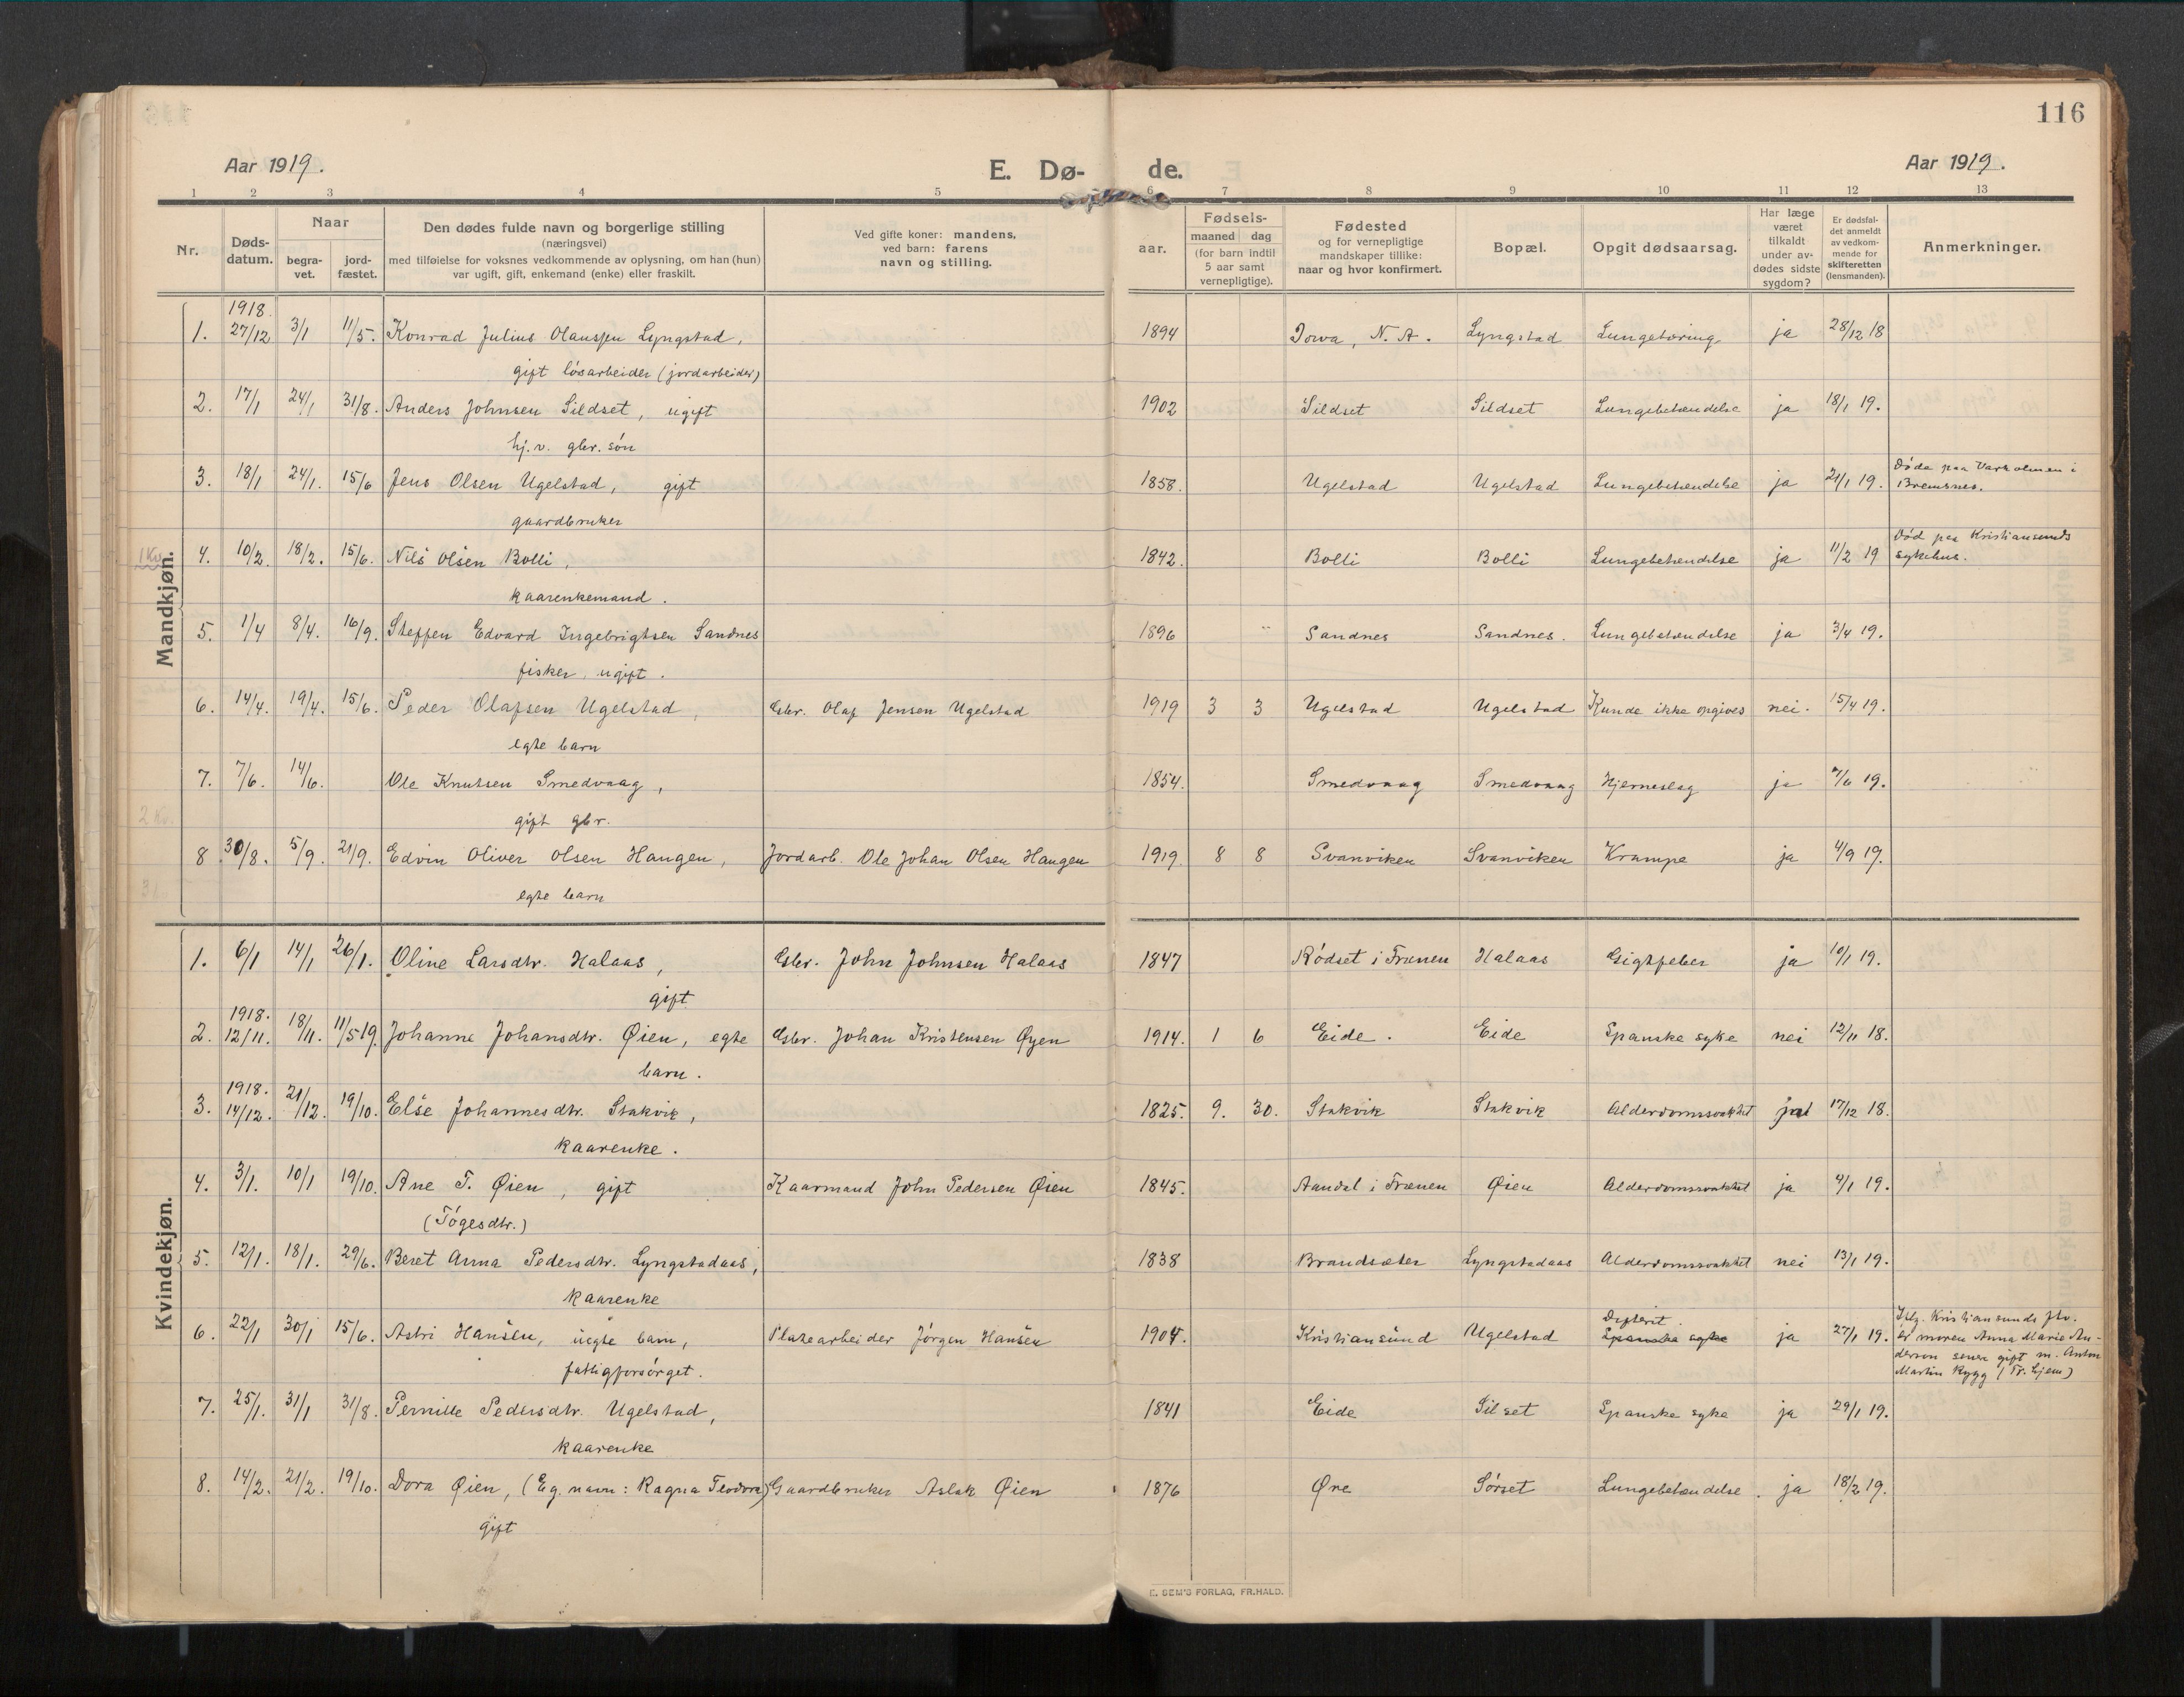 116
Aar 1919.
E. Dø- de.
Aar 1919.
1 2 3 4 5 6 7 8 9 10 11 12 13
Nr.
Døds-
datum.
Naar
begra-
vet.
jord-
fæstet.
Den dødes fulde navn og borgerlige stilling
(næringsvei)
med tilføielse for voksnes vedkommende av oplysning, om han (hun)
var ugift, gift, enkemand (enke) eller fraskilt.
Ved gifte koner: mandens,
ved barn: farens
navn og stilling.
Fødsels-
aar.
maaned dag
(for barn indtil
5 aar samt
vernepligtige).
Fødested
og for vernepligtige
mandskaper tillike:
naar og hvor konfirmert.
Bopæl.
Opgit dødsaarsag.
Har læge
været
tilkaldt
under av-
dødes sidste
sygdom?
Er dødsfal-
det anmeldt
av vedkom-
mende for
skifteretten
(lensmanden).
Anmerkninger.
Mandkjøn.
1918.
1. 27/12 3/1 11/5. Konrad Julius Olaussen Lyngstad, 1894 Iowa, N. A. Lyngstad Lungetæring ja 28/12 18
gift løsarbeider (jordarbeider)
2. 17/1 24/1 31/8. Anders Johnsen Sildset, ugift 1902 Sildset Sildset Lungebetændelse ja 18/1 19.
hj. v. gbr. søn
3. 18/1 24/1. 15/6 Jens Olsen Ugelstad, gift 1858. Ugelstad Ugelstad Lungebetændelse ja 21/1 19. Døde paa Varholmen i
Bremsnes.
gaardbruker
1 Kv.
4. 10/2. 18/2. 15/6. Nils Olsen Bolli, 1842. Bolli Bolli Lungebetændelse ja 11/2 19 Død paa Kristiansunds
sykehus.
kaarenkemand.
5. 1/4 8/4. 16/9. Steffen Edvard Ingebrigtsen Sandnes 1896 Sandnes Sandnes. Lungebetændelse ja 3/4 19.
fisker, ugift.
6. 14/4. 19/4. 15/6. Peder Olafsen Ugelstad, Gbr. Olaf Jensen Ugelstad 1919 3 3 Ugelstad Ugelstad Kunde ikke opgives nei. 15/4 19.
egte barn
7. 7/6. 14/6. Ole Knutsen Smedvaag, 1854. Smedvaag Smedvaag Hjerneslag ja 7/6 19.
2 Kv.
gift gbr.
8 30/8. 5/9. 21/9. Edvin Oliver Olsen Haugen, Jordarb. Ole Johan Olsen Haugen 1919. 8 8 Svanviken Svanviken Krampe ja 4/9 19.
egte barn
Kvindekjøn.
1. 6/1 14/1 26/1. Oline Larsdtr. Halaas, Gbr. John Johnsen Halaas 1847 Rødset i Frænen Halaas Gigtfeber ja 10/1 19.
gift
1918.
2. 12/11. 18/11. 11/5 19. Johanne Johansdtr. Øien, egte Gbr. Johan Kristensen Øyen 1914. 1 6 Eide. Eide Spanske syke nei 12/11 18.
barn.
1918.
3. 14/12. 21/12. 19/10. Else Johannesdtr. Stakvik, 1825. 9. 30. Stakvik Stakvik Alderdomssvakhet 17/12 18.
kaarenke.
4. 3/1. 10/1 19/10. Ane T. Øien, gift Kaarmand John Pedersen Øien 1845. Aandal i Frænen Øien Alderdomssvakhet ja 4/1 19.
(Tøgesdtr.)
5. 12/1. 18/1. 29/6. Beret Anna Pedersdtr. Lyngstadaas, 1838 Brandsæter Lyngstadaas Alderdomssvakhet nei 13/1 19.
kaarenke
6. 22/1 30/1 15/6. Astri Hansen, uegte barn, Platearbeider Jørgen Hansen 1907. Kristiansund Ugelstad Difterit. Spanske syke ja 27/1 19. Kristiansunds
er moren Anna Marie An-
dersen senere gift m. Anton
Martin Rygg (Fr. hjem)
fattigforsørget.
7. 25/1. 31/1 31/8. Pernille Pedersdtr. Ugelstad, 1841 Eide Silset Spanske syke ja 29/1 19.
kaarenke
8. 14/2. 21/2. 19/10. Dora Øien, (Eg. navn: Ragna Teodora) Gaardbruker Aslak Øien 1876 Øre Sørset Lungebetændelse. ja 18/2 19.
gift
E. SEM'S FORLAG, FR.HALD.